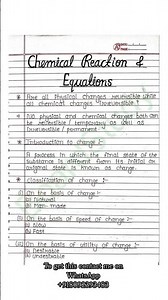 Chemical Reaction &
Equations
* Are all physical changes reversible while
all chemical changes irreversible?
* No physical and chemical changes both can
be reversible / temporary as well as
irreversible / permanent.
* Introduction to change :-
A process in which the final state of the
substance is different from its initial or
original state is known as change.
* Classification of change :-
(i) On the basis of change :-
Natural
Man-made
(ii) On the basis of speed of change :-
Slow
Fast
(iii) On the basis of utility of change :-
Desirable
Undesirable
To get this contact me on
WhatsApp